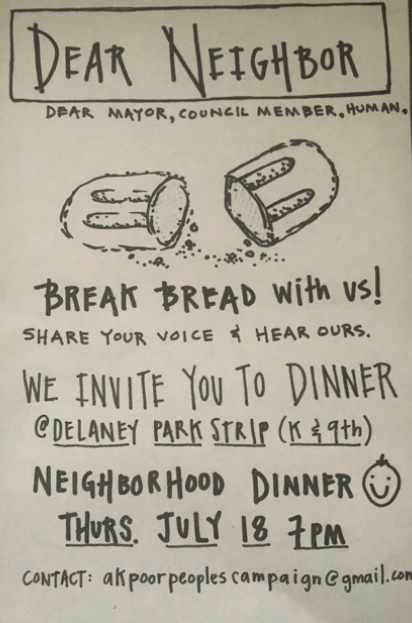 DEAR NEIGHBOR
DEAR MAYOR, COUNCIL MEMBER, HUMAN.
BREAK BREAD with us!
SHARE YOUR VOICE & HEAR OURS.
WE INVITE YOU TO DINNER
@DELANEY PARK STRIP (K & 9th)
NEIGHBORHOOD DINNER
THURS. JULY 18 7PM
CONTACT: akpoorpeoplescampaign@gmail.com